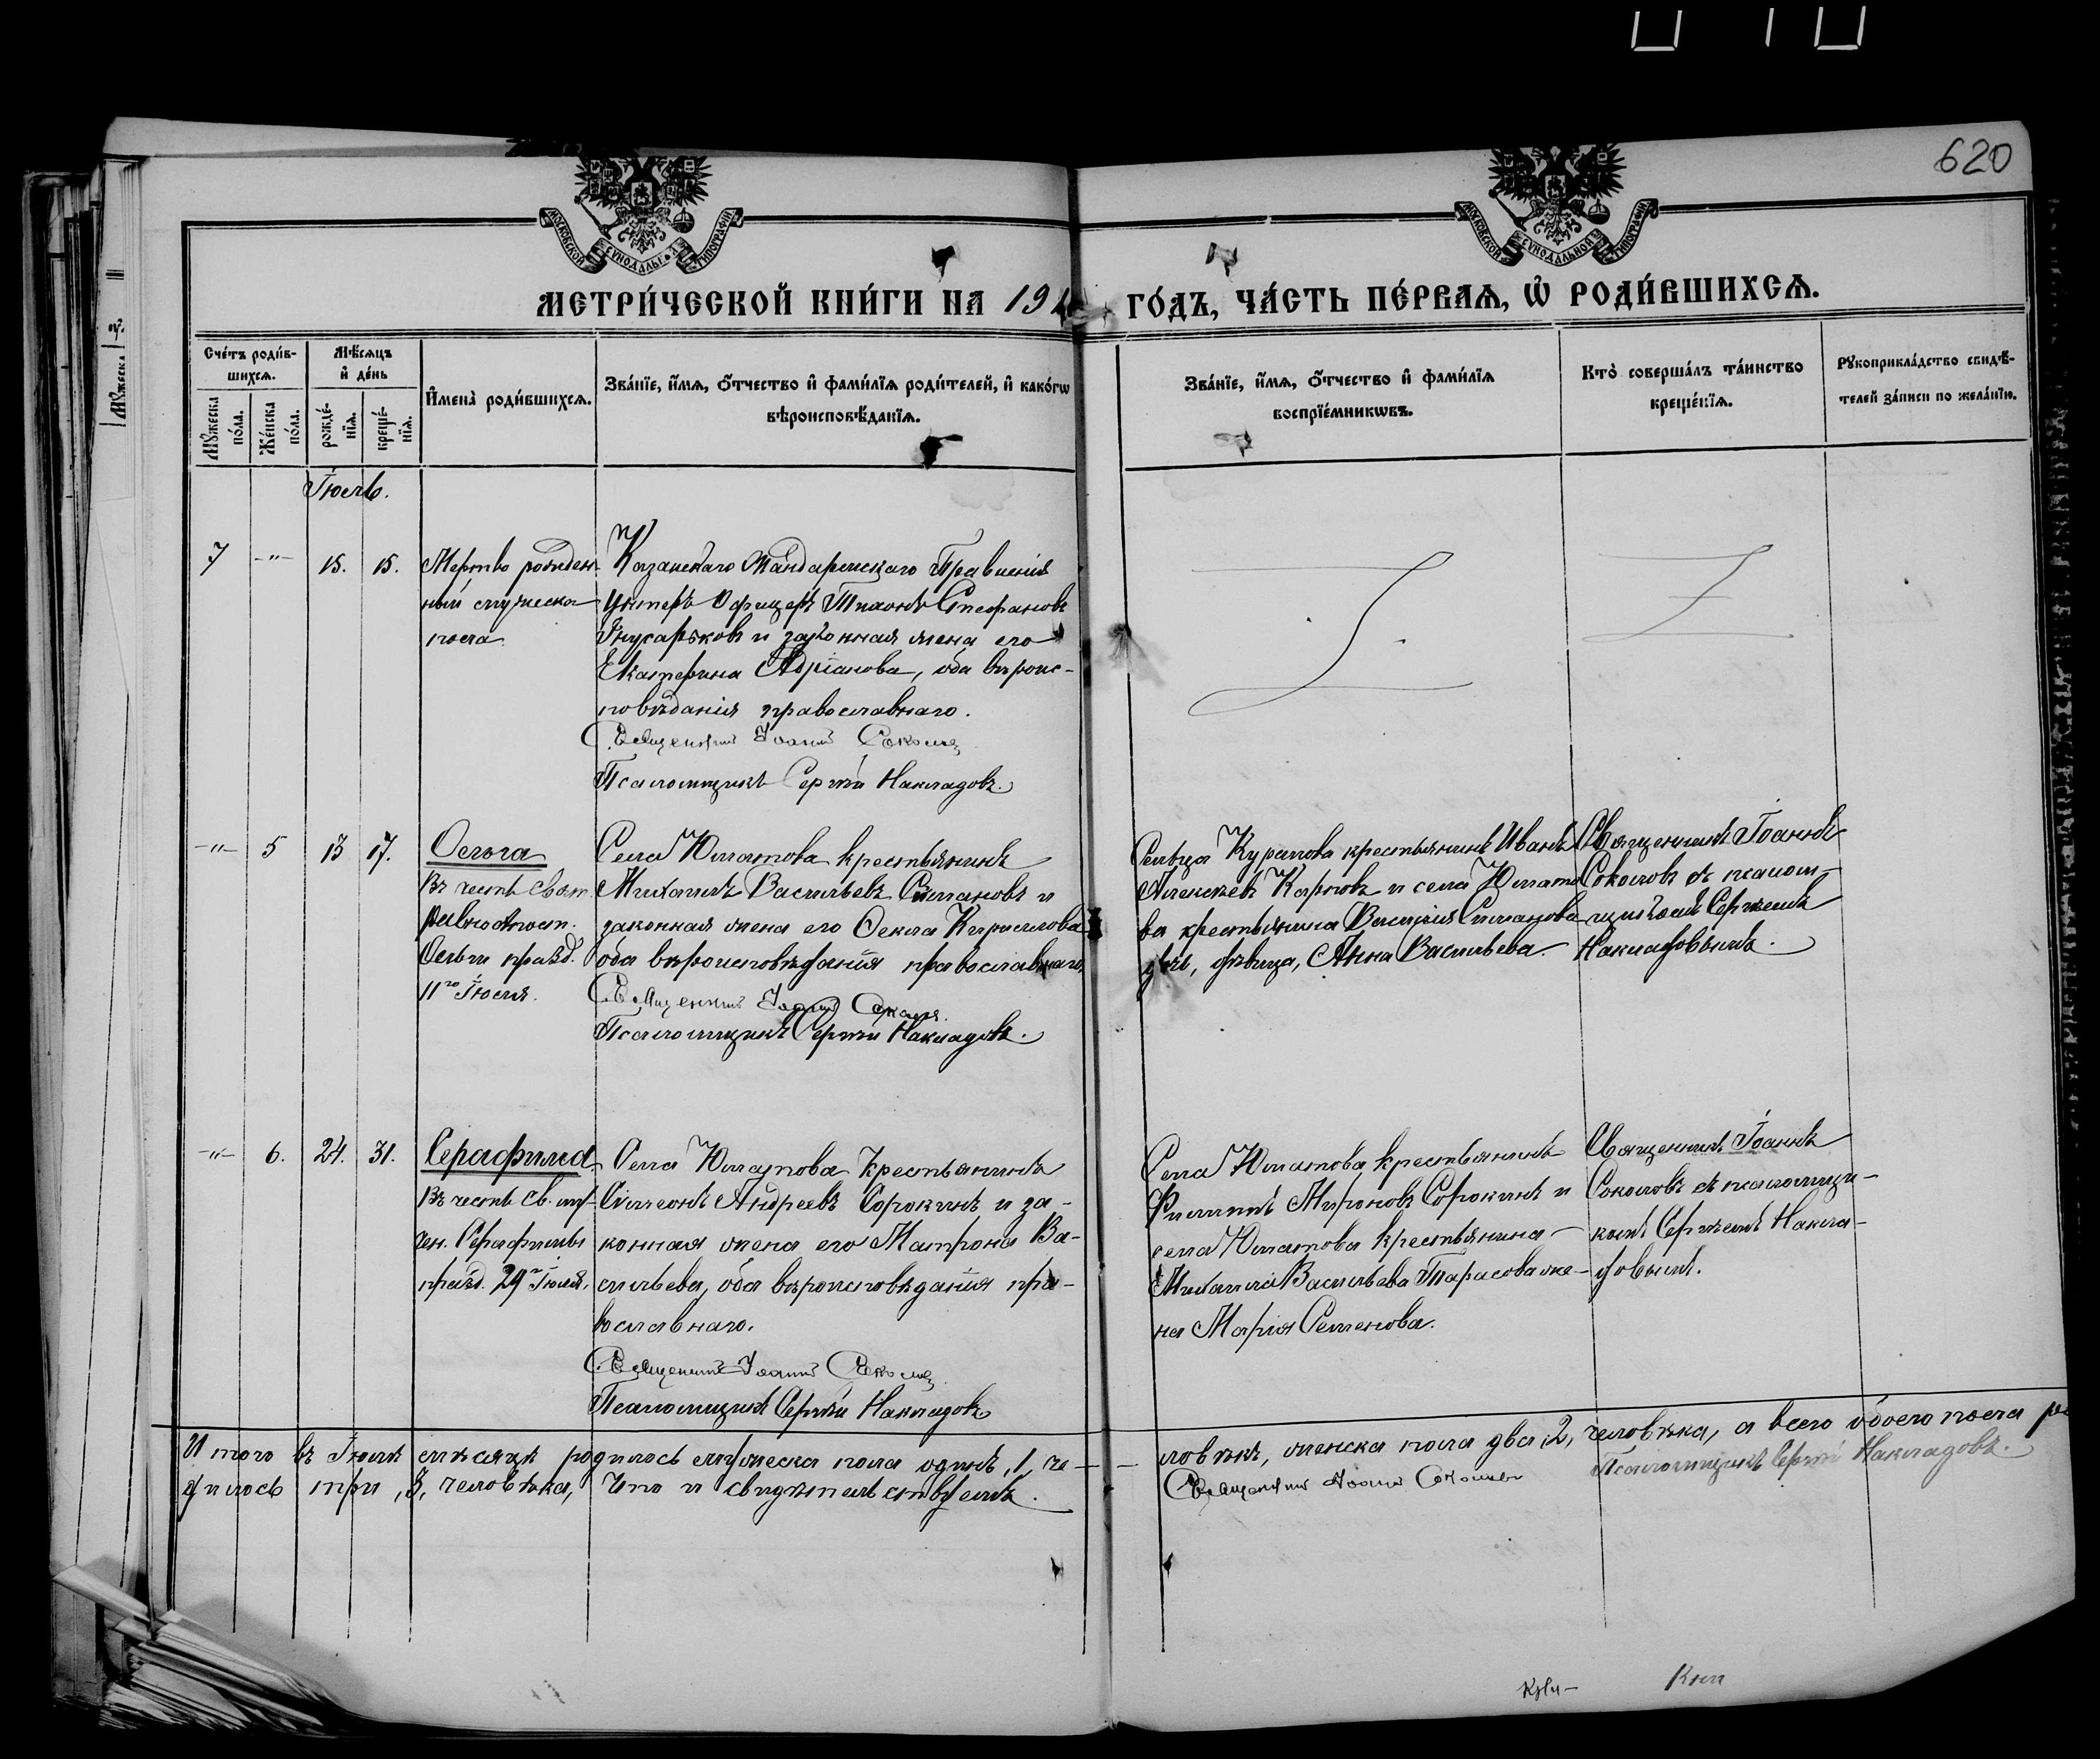 620
МОСКОВСКОЙ СѴНОДАЛЬНОЙ ТИПОГРАФІИ
МОСКОВСКОЙ СѴНОДАЛЬНОЙ ТИПОГРАФІИ
МЕТРИ́ЧЕСКОЙ КНИ́ГИ НА 19
ГО́ДЪ, ЧА́СТЬ ПЕ́РВАѦ, Ѽ РОДИ́ВШИХСѦ.
Сче́тъ роди́в-
шихсѧ.
Мѣ́сѧцъ
и҆ де́нь
Мꙋ́жеска
по́ла.
Же́нска
по́ла.
рожде́-
нїѧ.
креще́-
нїѧ.
И҆мена̀ роди́вшихсѧ.
Зва́нїе, и҆́мѧ, ѻ҆́тчество и҆ фами́лїѧ роди́телей, и҆ како́гѡ
вѣроисповѣ́данїѧ.
Зва́нїе, и҆́мѧ, ѻ҆́тчество и҆ фами́лїѧ
воспрїе́мникѡвъ.
Кто̀ соверша́лъ та́инство
креще́нїѧ.
Рꙋкоприкла́дство свидѣ́-
телей за́писи по жела́нїю.
Іюль.
7 -"- 15. 15.
Мертво рожден-
ный мужеска
пола
Казанскаго Жандармскаго Правленія
Унтеръ Офицеръ Тихонъ Стефановъ
и законная жена его
Екатерина Адріанова, оба вѣроис-
повѣданія православнаго.
Священникъ Іоаннъ Соколовъ
Псаломщикъ Сергѣй Накладовъ.
-"- 5 13 17.
Ольга
Въ честь Свят.
равноапост.
Ольги празд.
11го Іюля.
Села Юматова крестьянинъ
Михаилъ Васильевъ Симановъ и
законная жена его Ѳекла Кириллова
оба вѣроисповѣданія православнаго.
Священникъ Іоаннъ Соколовъ.
Псаломщикъ Сергѣй Накладовъ.
Сельца Куралова крестьянинъ Иванъ
Алексѣевъ Карповъ и села Юмато-
ва крестьянина Василія Симанова
дочь, дѣвица, Анна Васильева.
Священникъ Іоаннъ
Соколовъ съ псалом-
щикомъ Сергѣемъ
Накладовымъ.
-"- 6. 24. 31.
Серафима
Въ честь Св. му-
чен. Серафимы
празд. 29го Іюля.
Села Юматова Крестьянинъ
Симеонъ Андреевъ Сорокинъ и за-
конная жена его Матрона Ва-
сильева, оба вѣроисповѣданія пра-
вославнаго.
Священникъ Іоаннъ Соколовъ
Псаломщикъ Сергѣй Накладовъ
Села Юматова крестьянинъ
Филиппъ Мироновъ Сорокинъ и
села Юматова крестьянина
Михаила Васильева Тарасова же-
на Марія Семенова.
Священникъ Іоаннъ
Соколовъ съ псаломщи-
комъ Сергѣемъ Накла-
довымъ.
Итого въ Іюлѣ мѣсяцѣ родилось мужеска пола одинъ, 1, че-
ловѣкъ, женска пола два, 2, человѣка, а всего обоего пола ро
дилось три, 3, человѣка, Что и свидѣтельствуемъ.
Священникъ Іоаннъ Соколовъ
Псаломщикъ Сергѣй Накладовъ.